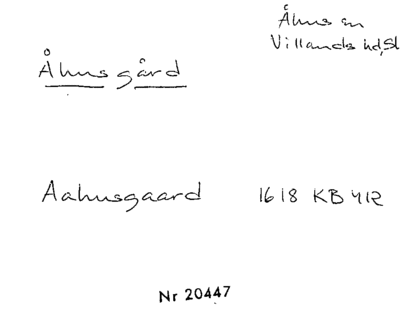 Åhus sn
Villands hd, Sk
Åhusgård
Aahusgaard 1618 KB 412
Nr 20447